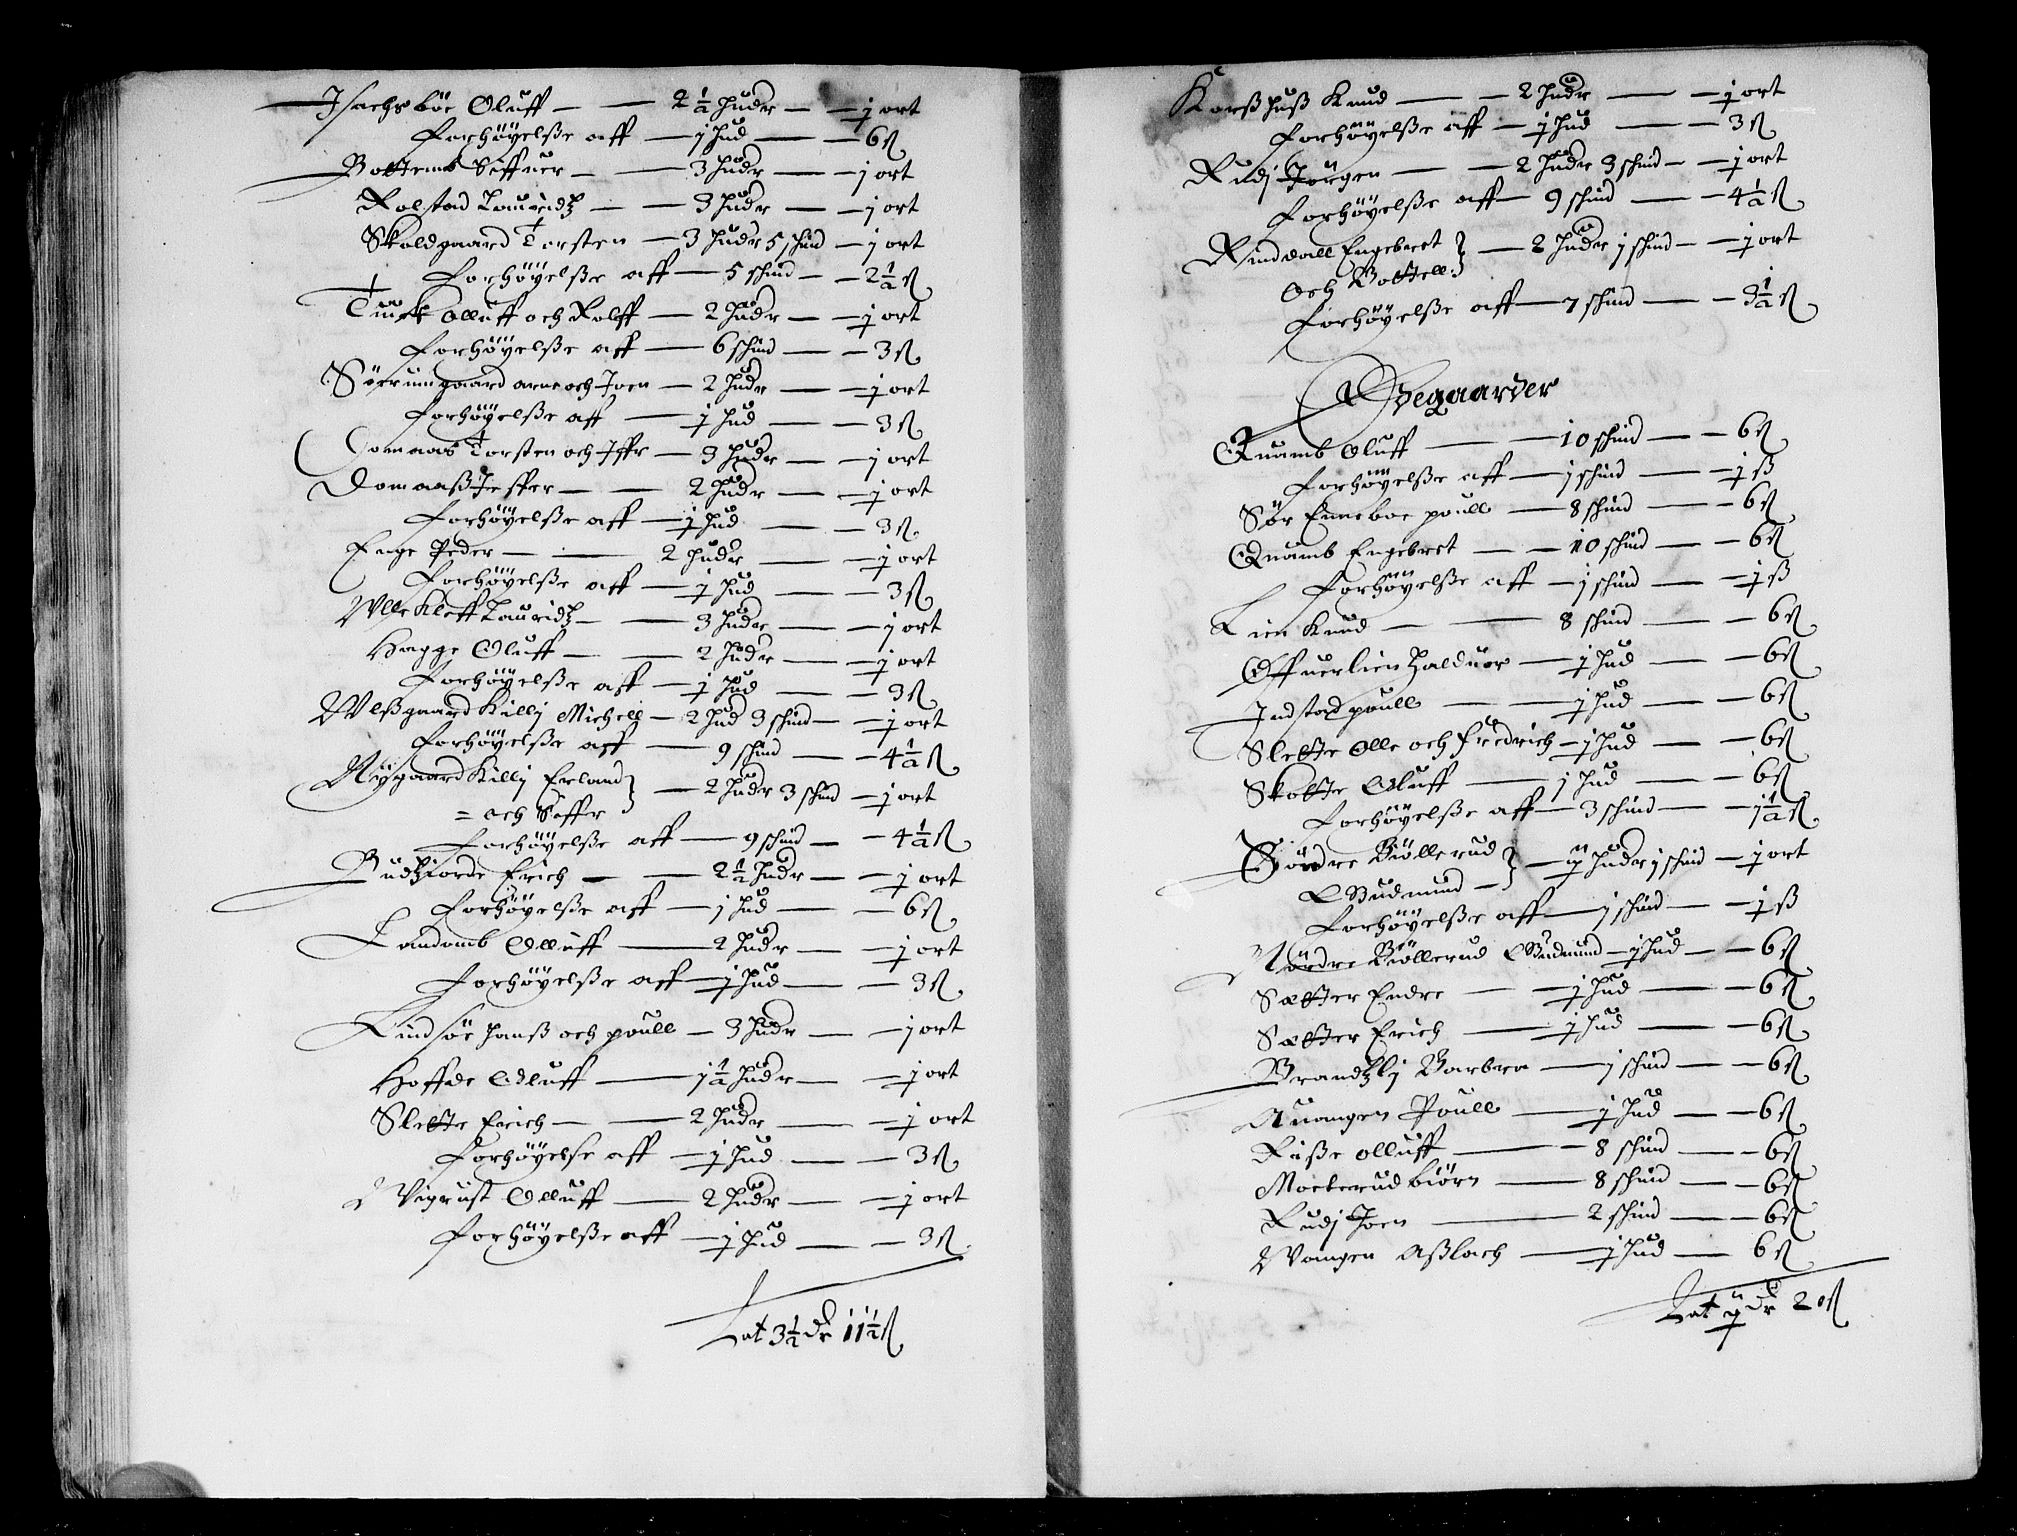 Isachsböe Oluff — — 2½ hudr — — j ort
Forhöyelsße aff — j hud — — 6 ß
Bottemb Siffuer — — 3 hudr — — j ort
Rolstad Lauridtz — — 3 hudr — — j ort
Skoldgaard Torsten — 3 hudr 5 schind — j ort
Forhöyelsße aff — 5 schind — — 2½ ß
Tiürk olluff och Rolff — 2 hudr — — j ort
Forhöyelsße aff — 6 schind — — 3 ß
Sörrumgaard arne och Joen — 2 hudr — — j ort
Forhöyelsße aff — j hud — — 3 ß
Domaas Torsten och Iffr — 3 hudr — — j ort
Domaaß Jesper — — 2 hudr — — j ort
Forhöyelsße aff — j hud — — 3 ß
Enge Peder — — 2 hudr — — j ort
Forhöyelsße aff — j hud — — 3 ß
Wlle Kleff Lauridtz — — 3 hudr — — j ort
Hagge Oluff — — 2 hudr — — j ort
Forhöyelsße aff — j hud — — 3 ß
Wlßgaard Killj Michell — 2 hud 3 schind — j ort
Forhöyelsße aff — 9 schind — — 4½ ß
Nygaard Killj Erland } — 2 hudr 3 schind — j ort
= och Siffr
Forhöyelsße aff — 9 schind — — 4½ ß
Budtziorde Erich — — 2½ hudr — — j ort
Forhöyelsße aff — j hud — — 6 ß
Landomb Olluff — 2 hudr — — j ort
Forhöyelsße aff — j hud — — 3 ß
Lindsöe hanß och poull — 3 hudr — — j ort
Hoffde Odluff — j½ hudr — — j ort
Slette Erich — — 2 hudr — — j ort
Forhöyelse aff — j hud — — 3 ß
Wigrust Olluff — 2 hudr — — j ort
Forhöyelsße aff — j hud — — 3 ß
Lat 3½ dr 11½ ß
Korßhuß Knud — — 2 hudr — — j ort
Forhöyelsße aff — j hud — — 3 ß
Rudj Jörgen — — 2 hudr 3 schind — j ort
Forhöyelsße aff — 9 schind — — 4½ ß
Rinddall Engebret } — 2 hudr j schind — — j ort
och Bottell
Forhöyelsße aff — 7 schind — — 3½ ß
Ödegaarder
Quamb Oluff — — 10 schind — — 6 ß
Forhöyelsße aff — j schind — — j ß
Sör Enneboe poull — 8 schind — — 6 ß
Quamb Engebret — — 10 schind — — 6 ß
Forhöyelsße aff — j schind — — j ß
Lien Knud — — 8 schind — — 6 ß
Offuerlien Halduor — j hud — — 6 ß
Indstad poull — — j hud — — 6 ß
Slette Olle och Fredrich — j hud — — 6 ß
Skotte Oluff — j hud — — 6 ß
Forhöyelsße aff — 3 schind — — j½ ß
Söndre Biöllerud } — ij hudr j schind — j ort
Gudmund —
Forhöyelsße aff — j schind — — j ß
Nordre Biöllerud Gudmund — j hud — — 6 ß
Sætter Endre — — j hud — — 6 ß
Sætter Erich — — j hud — — 6 ß
Brandtzlj Barbra — j schind — — 6 ß
Auangen Poull — j hud — — 6 ß
Riiße olluff — — 8 schind — — 6 ß
Mosterud biörn — 8 schind — — 6 ß
Rudj Joen — 2 schind — — 6 ß
Wangen Aßlach — j hud — 6 ß
Lat ij dr 20 ß